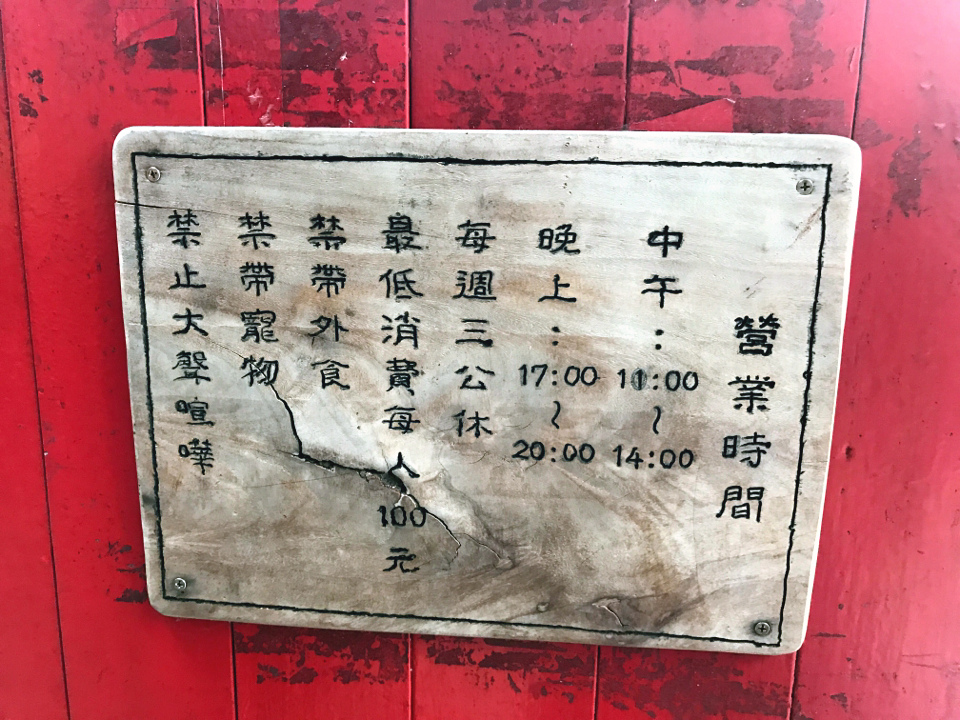 營業時間
中午：11:00～14:00
晚上：17:00～20:00
每週三公休
最低消費每人100元
禁帶外食
禁帶寵物
禁止大聲喧嘩